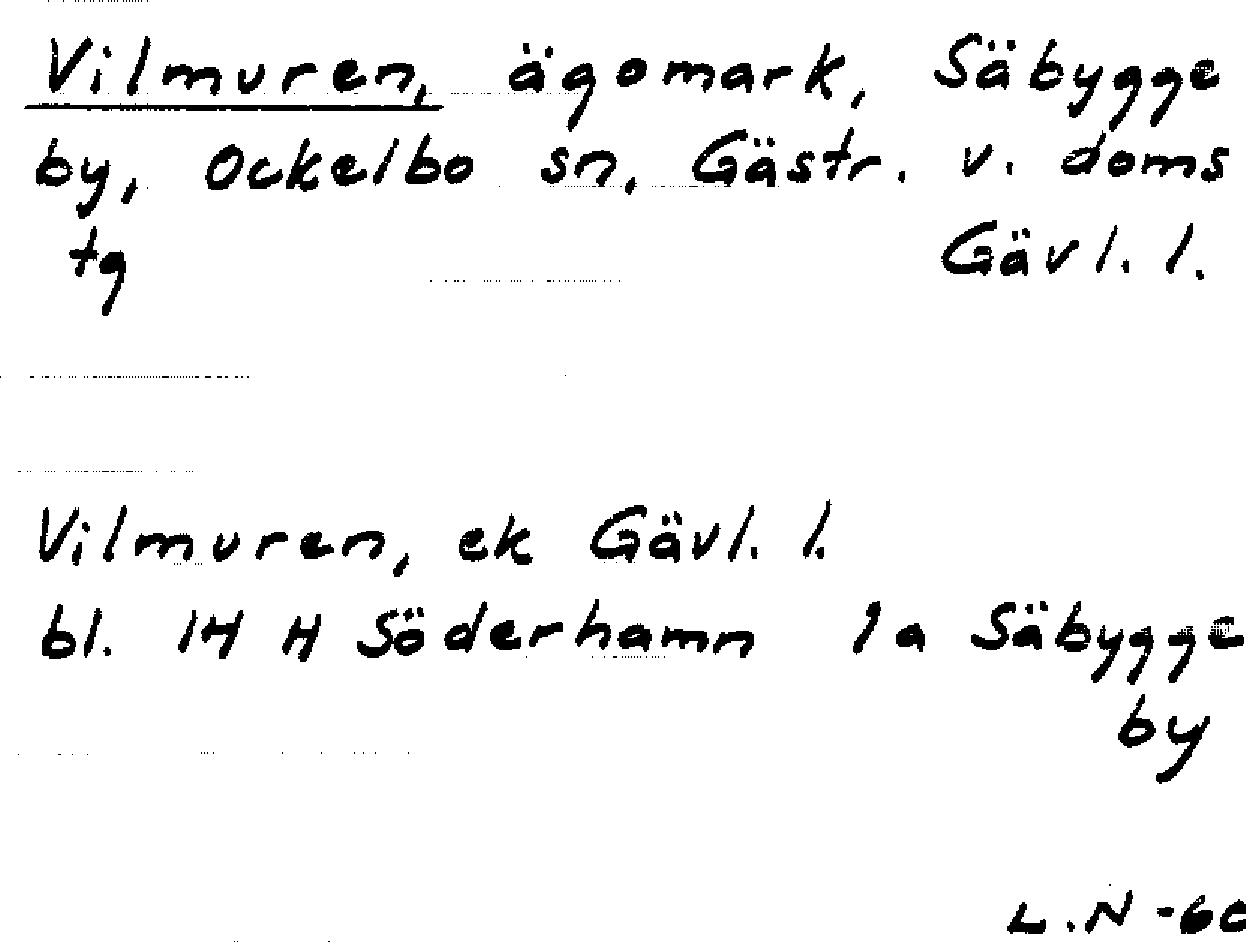 Vilmuren, ägomark, Säbygge
by, Ockelbo sn, Gästr. v. doms
tg Gävl. l.
Vilmuren, ek Gävl. l.
bl. 14 H Söderhamn 1a Säbygge
by
L.N -60